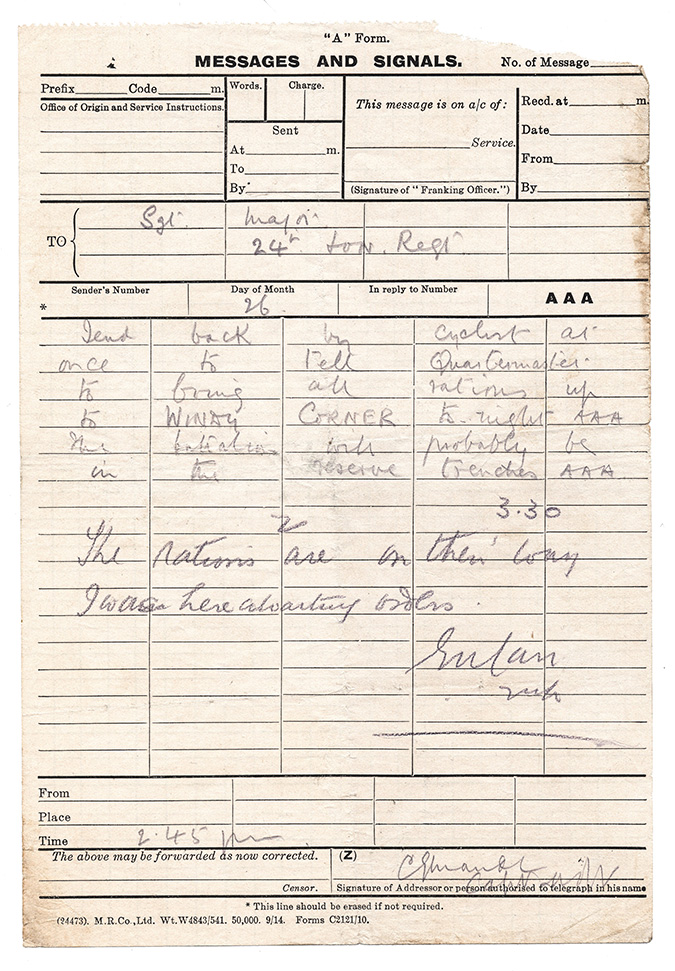 "A" Form.
MESSAGES AND SIGNALS. No. of Message
Prefix Code m.
Office of Origin and Service Instructions.
Words. Charge.
Sent
At m.
To
By
This message is on a/c of:
Service.
(Signature of "Franking Officer.")
Recd. at m.
Date
From
By
TO
Sgt. Major
24th Lon. Regt
Sender's Number Day of Month In reply to Number AAA
* 26
Send back by cyclist at
once to tell Quartermaster
to bring all rations up
to WINDY CORNER to-night AAA
The battalion will probably be
in the reserve trenches AAA
3.30
The rations are on their way
I was here awaiting orders.
From
Place
Time 2.45 pm
The above may be forwarded as now corrected. (Z)
Censor. Signature of Addressor or person authorised to telegraph in his name
* This line should be erased if not required.
(24473). M.R.Co.,Ltd. Wt.W4843/541. 50,000. 9/14. Forms C2121/10.